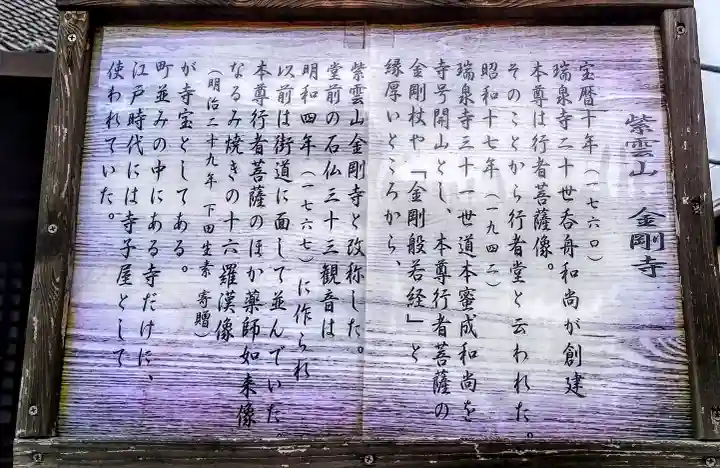 紫雲山 金剛寺
宝暦十年（一七六〇）
瑞泉寺二十世呑舟和尚が創建
本尊は行者菩薩像。
そのことから行者堂と云われた。
昭和十七年（一九四二）
瑞泉寺三十一世道本蜜成和尚を
寺号開山とし、本尊行者菩薩の
金剛杖や「金剛般若経」と
縁厚いところから、
紫雲山金剛寺と改称した。
堂前の石仏三十三観音は
明和四年（一七六七）に作られ
以前は街道に面して並んでいた
本尊行者菩薩のほか薬師如来像
なるみ焼きの十六羅漢像
（明治二十九年 下田生素 寄贈）
が寺宝としてある。
町並みの中にある寺だけに、
江戸時代には寺子屋として
使われていた。